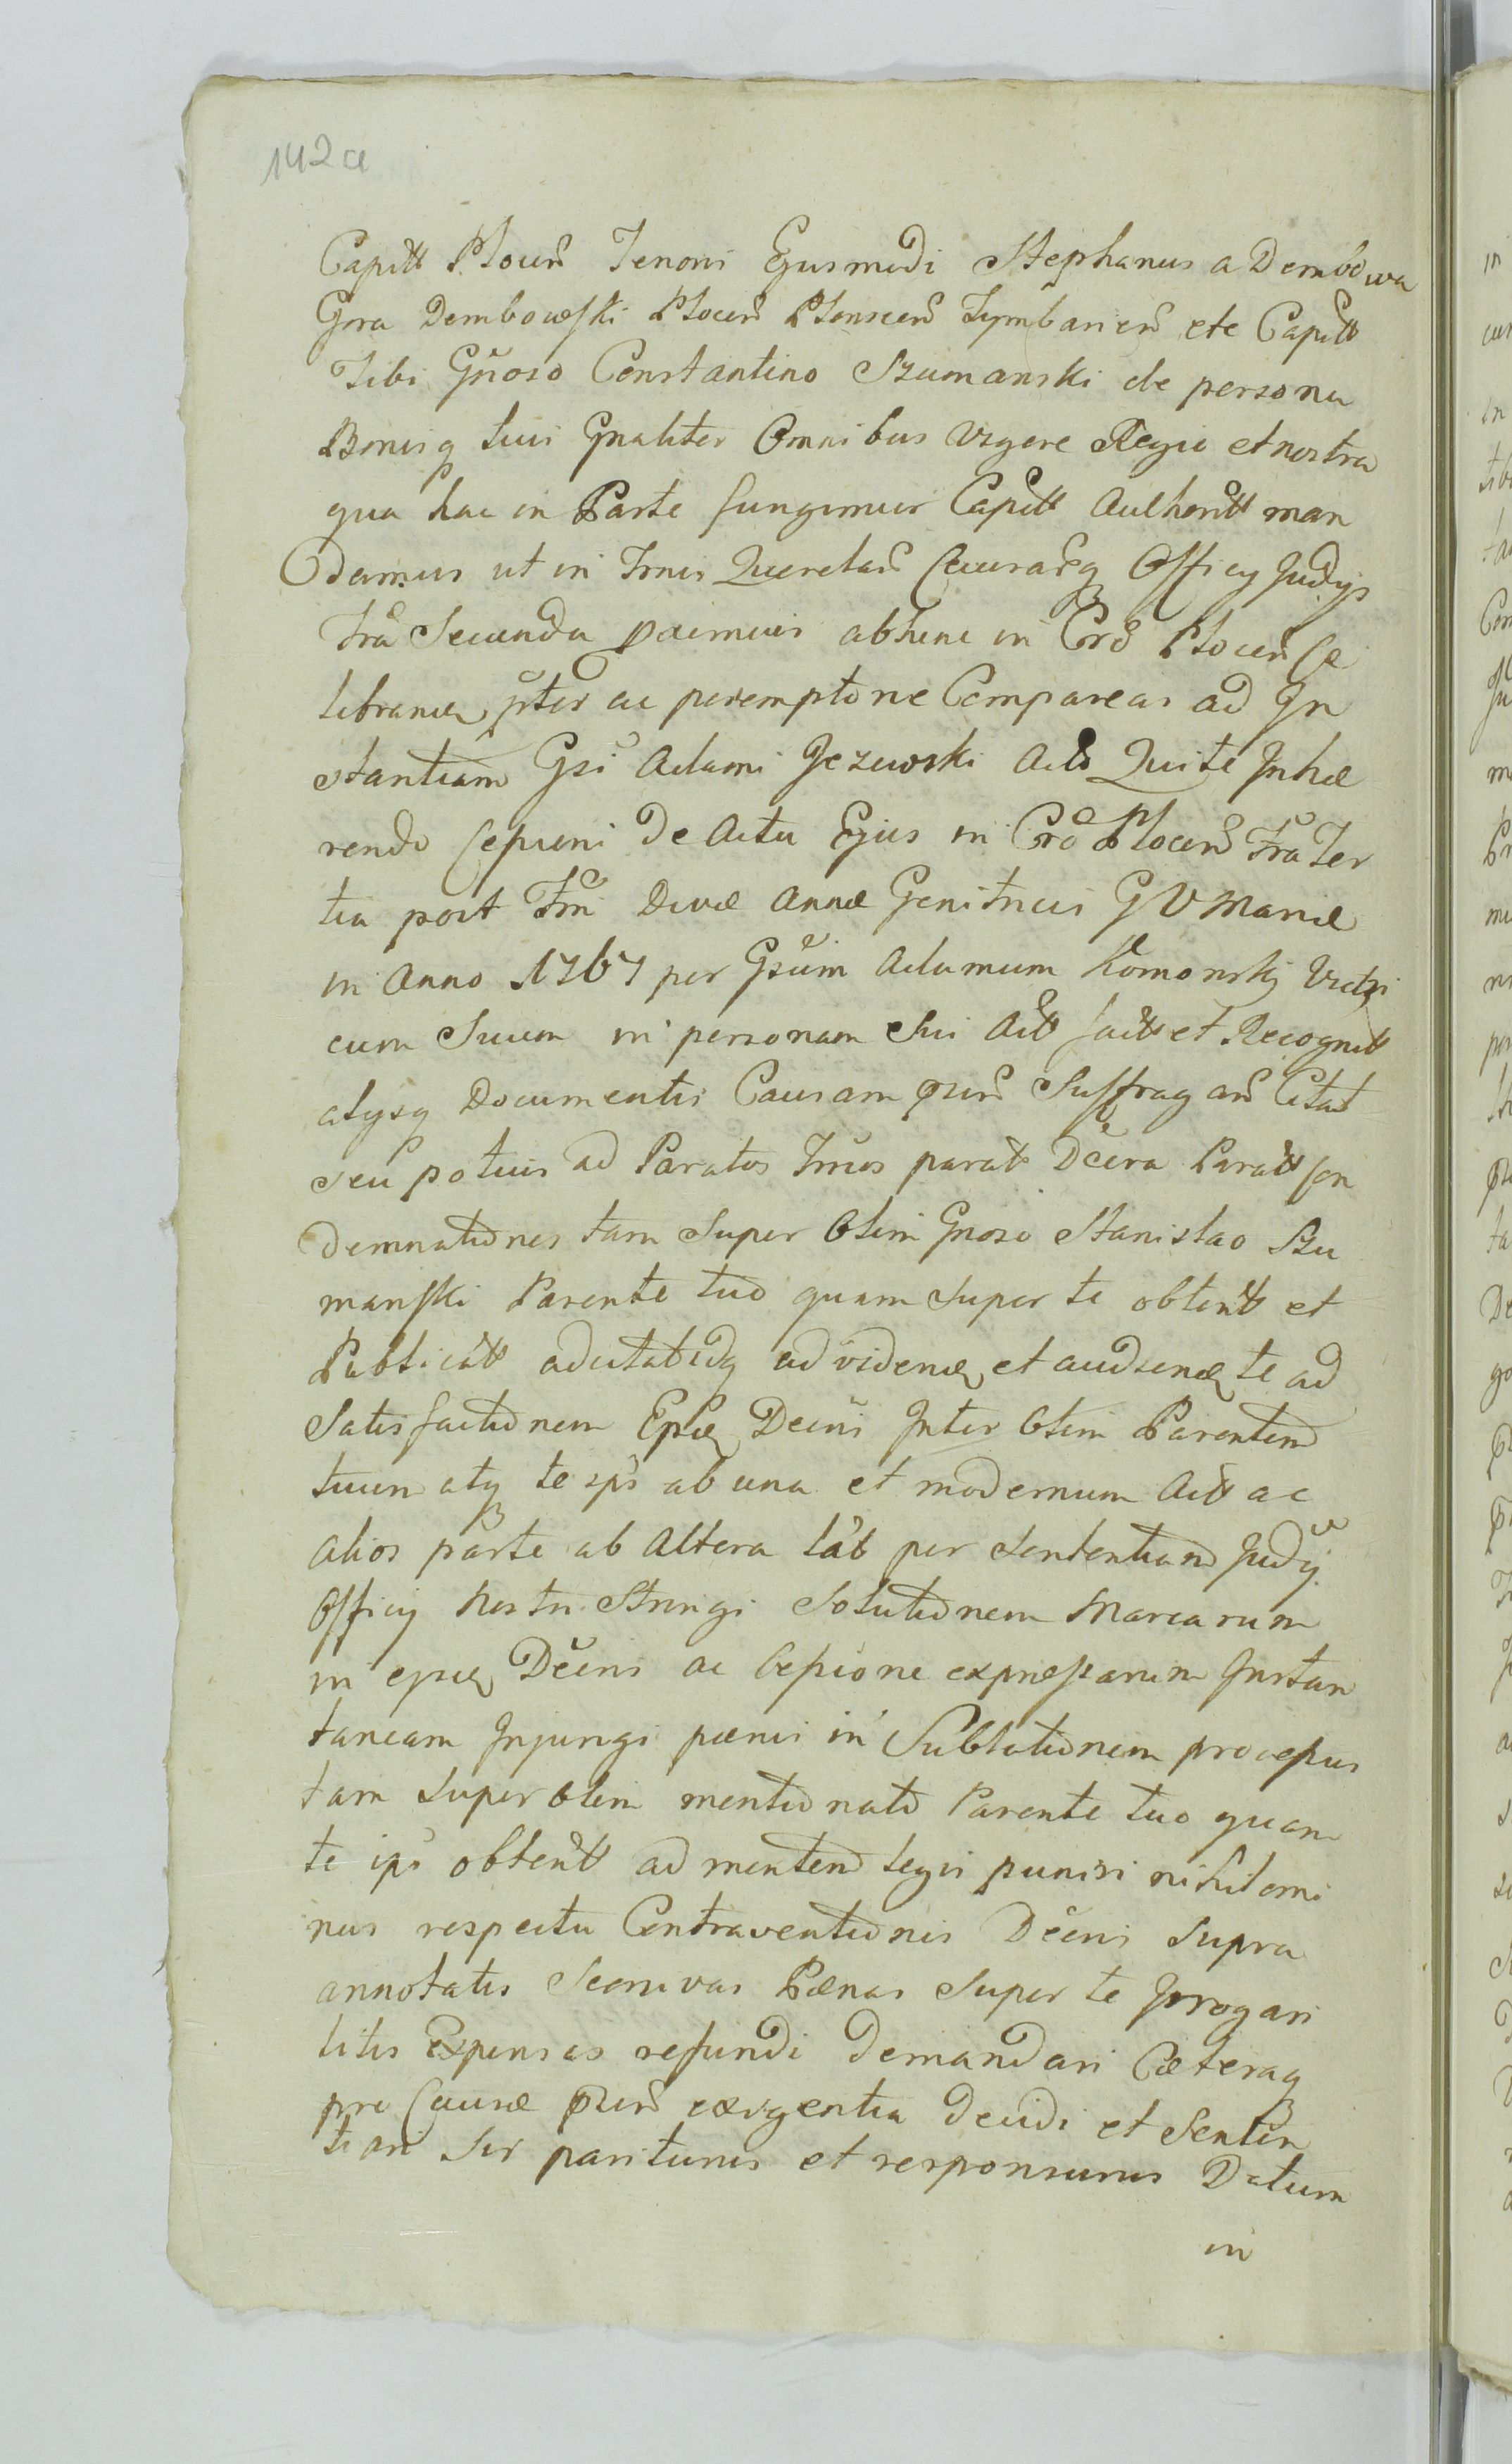 142a
Capitt Plocen̄ Tenoris Ejusmodi Stephanus a Dembowa
Gora Dembowski Plocen̄ Plonscen̄ Tymbarien̄ etc Capitt
Tibi Gn̄oso Constantino Szumanski de persona
Bonisq tuis Gnaliter Omnibus Vigore Regia et nostra
qua hac in Parte fungimur Capitt Authoritt man
damus ut in Trnis Querelar̄ Causar̄q Officij Judijs
Fr̄a Secunda proximius abhinc in Cr̄o Plocen̄ Ce
librandꝫ pt̄er ac peremptorie Compareas ad In
stantiam Gsi Adami Jezewski Act Quite Inhæ
rendo Cessioni De Actu Ejus in Cr̄o Plocen̄ Fr̄a Ter
tia post Fm̄ Divæ Annæ Genitricis G V Mariæ
in Anno 1767 per Gsum Adamum Komorskj Vitri
cum Suum in personam Sui Att factt et Recognitt
alysq Documentis Causam pn̄n Suffragan̄ Citat
seu potius ad Paratos Trn̄os parat Dc̄era Paratt Con
demnationes tam Super Olim Gnoso Stanislao Szu
manski Parente tuo quam Super te obtentt et
Publicatt adcitatidq ad videndꝫ et audiendꝫ te ad
Satisfactionem Ejusdꝫ Decrēi Inter Olim Parentem
tuum atq te ips̄ ab una et modernum Att ac
alios parte ab Altera lat per Sententiam Judij
Officij Nostri Stringi Solutionem Marcarum
in ejusdꝫ Decrēi ac Cessione expressarum Instan
taneam Injungi pænis in Sublationem processus
tam Super Olim mentionato Parente tuo quam
te ips̄ obtentt ad mentem legis puniri nihilomi
nus respectu Contraventionis Decrēi Supra
annotatis Secuivas Pænas Super te Irrogari
litis Expensas refundi Demandari Cæteraq
pro Causæ pn̄n exigentia Decidi et Senten
tiari Sis pariturus et responsurus Datum
in